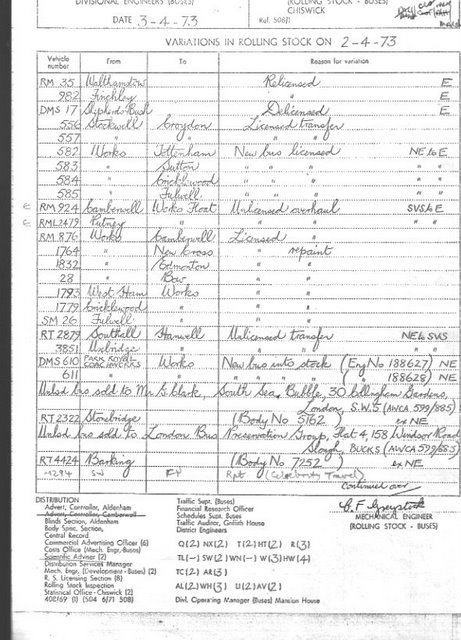 DIVISIONAL ENGINEERS (BUSES) (ROLLING STOCK - BUSES)
CHISWICK
DATE 3-4-73 Ref. 508/1
VARIATIONS IN ROLLING STOCK ON 2-4-73
Vehicle number From To Reason for variation
RM 35 Walthamstow Relicensed E
982 Finchley " E
DMS 17 Shepherds Bush Delicensed E
556 Stockwell Croydon Licensed transfer
557 " " " "
582 Works Tottenham New bus licensed NE to E
583 " Sutton " " " "
584 " Cricklewood " " " "
585 " Fulwell " " " "
E RM 924 Camberwell Works Float Unlicensed overhaul SVS to E
E RML 2479 Putney " " " " "
RM 876 Works Camberwell Licensed "
1764 " New Cross " repaint
1832 " Edmonton " "
28 " Bow " "
1793 West Ham Works " "
1779 Cricklewood " " "
SM 26 Fulwell " " "
RT 2879 Southall Hanwell Unlicensed transfer NE to SVS
3851 Uxbridge " " " "
DMS 610 PARK ROYAL COACHWORKS Works New bus into stock (Eng No 188627) NE
611 " " " " " " ( " " 188628) NE
Unlsd bus sold to Mr G. Clark, South Sea Bubble, 30 Collingham Gardens,
London, S.W.5 (AWCA 599/885)
RT 2322 Stonebridge (Body No 5162 ex NE
Unlsd bus sold to London Bus Preservation Group, Flat 4, 158 Windsor Road
Slough, BUCKS (AWCA 599/883)
RT 4424 Barking (Body No 7252) ex NE
SW FY Rpt
continued over
DISTRIBUTION
Advert. Controller, Aldenham
Advert. Controller, Camberwell
Blinds Section, Aldenham
Body Spec. Section,
Central Record
Commercial Advertising Officer (6)
Costs Office (Mech. Engr, Buses)
Scientific Adviser (2)
Distribution Services Manager
Mech. Engr, (Development - Buses) (2)
R. S. Licensing Section (8)
Rolling Stock Inspection
Statistical Office - Chiswick (2)
402/69 (1) (504 6/71 508)
Traffic Supt. (Buses)
Financial Research Officer
Schedules Supt. Buses
Traffic Auditor, Griffith House
District Engineers
Q(2) NX(2) T(2) HT(2) R(3)
TL(-) SW(2) WN(-) W(3) HW(4)
TC(2) AR(3)
AL(2) WH(3) U(2) AV(2)
Divl. Operating Manager (Buses) Mansion House
MECHANICAL ENGINEER
(ROLLING STOCK - BUSES)